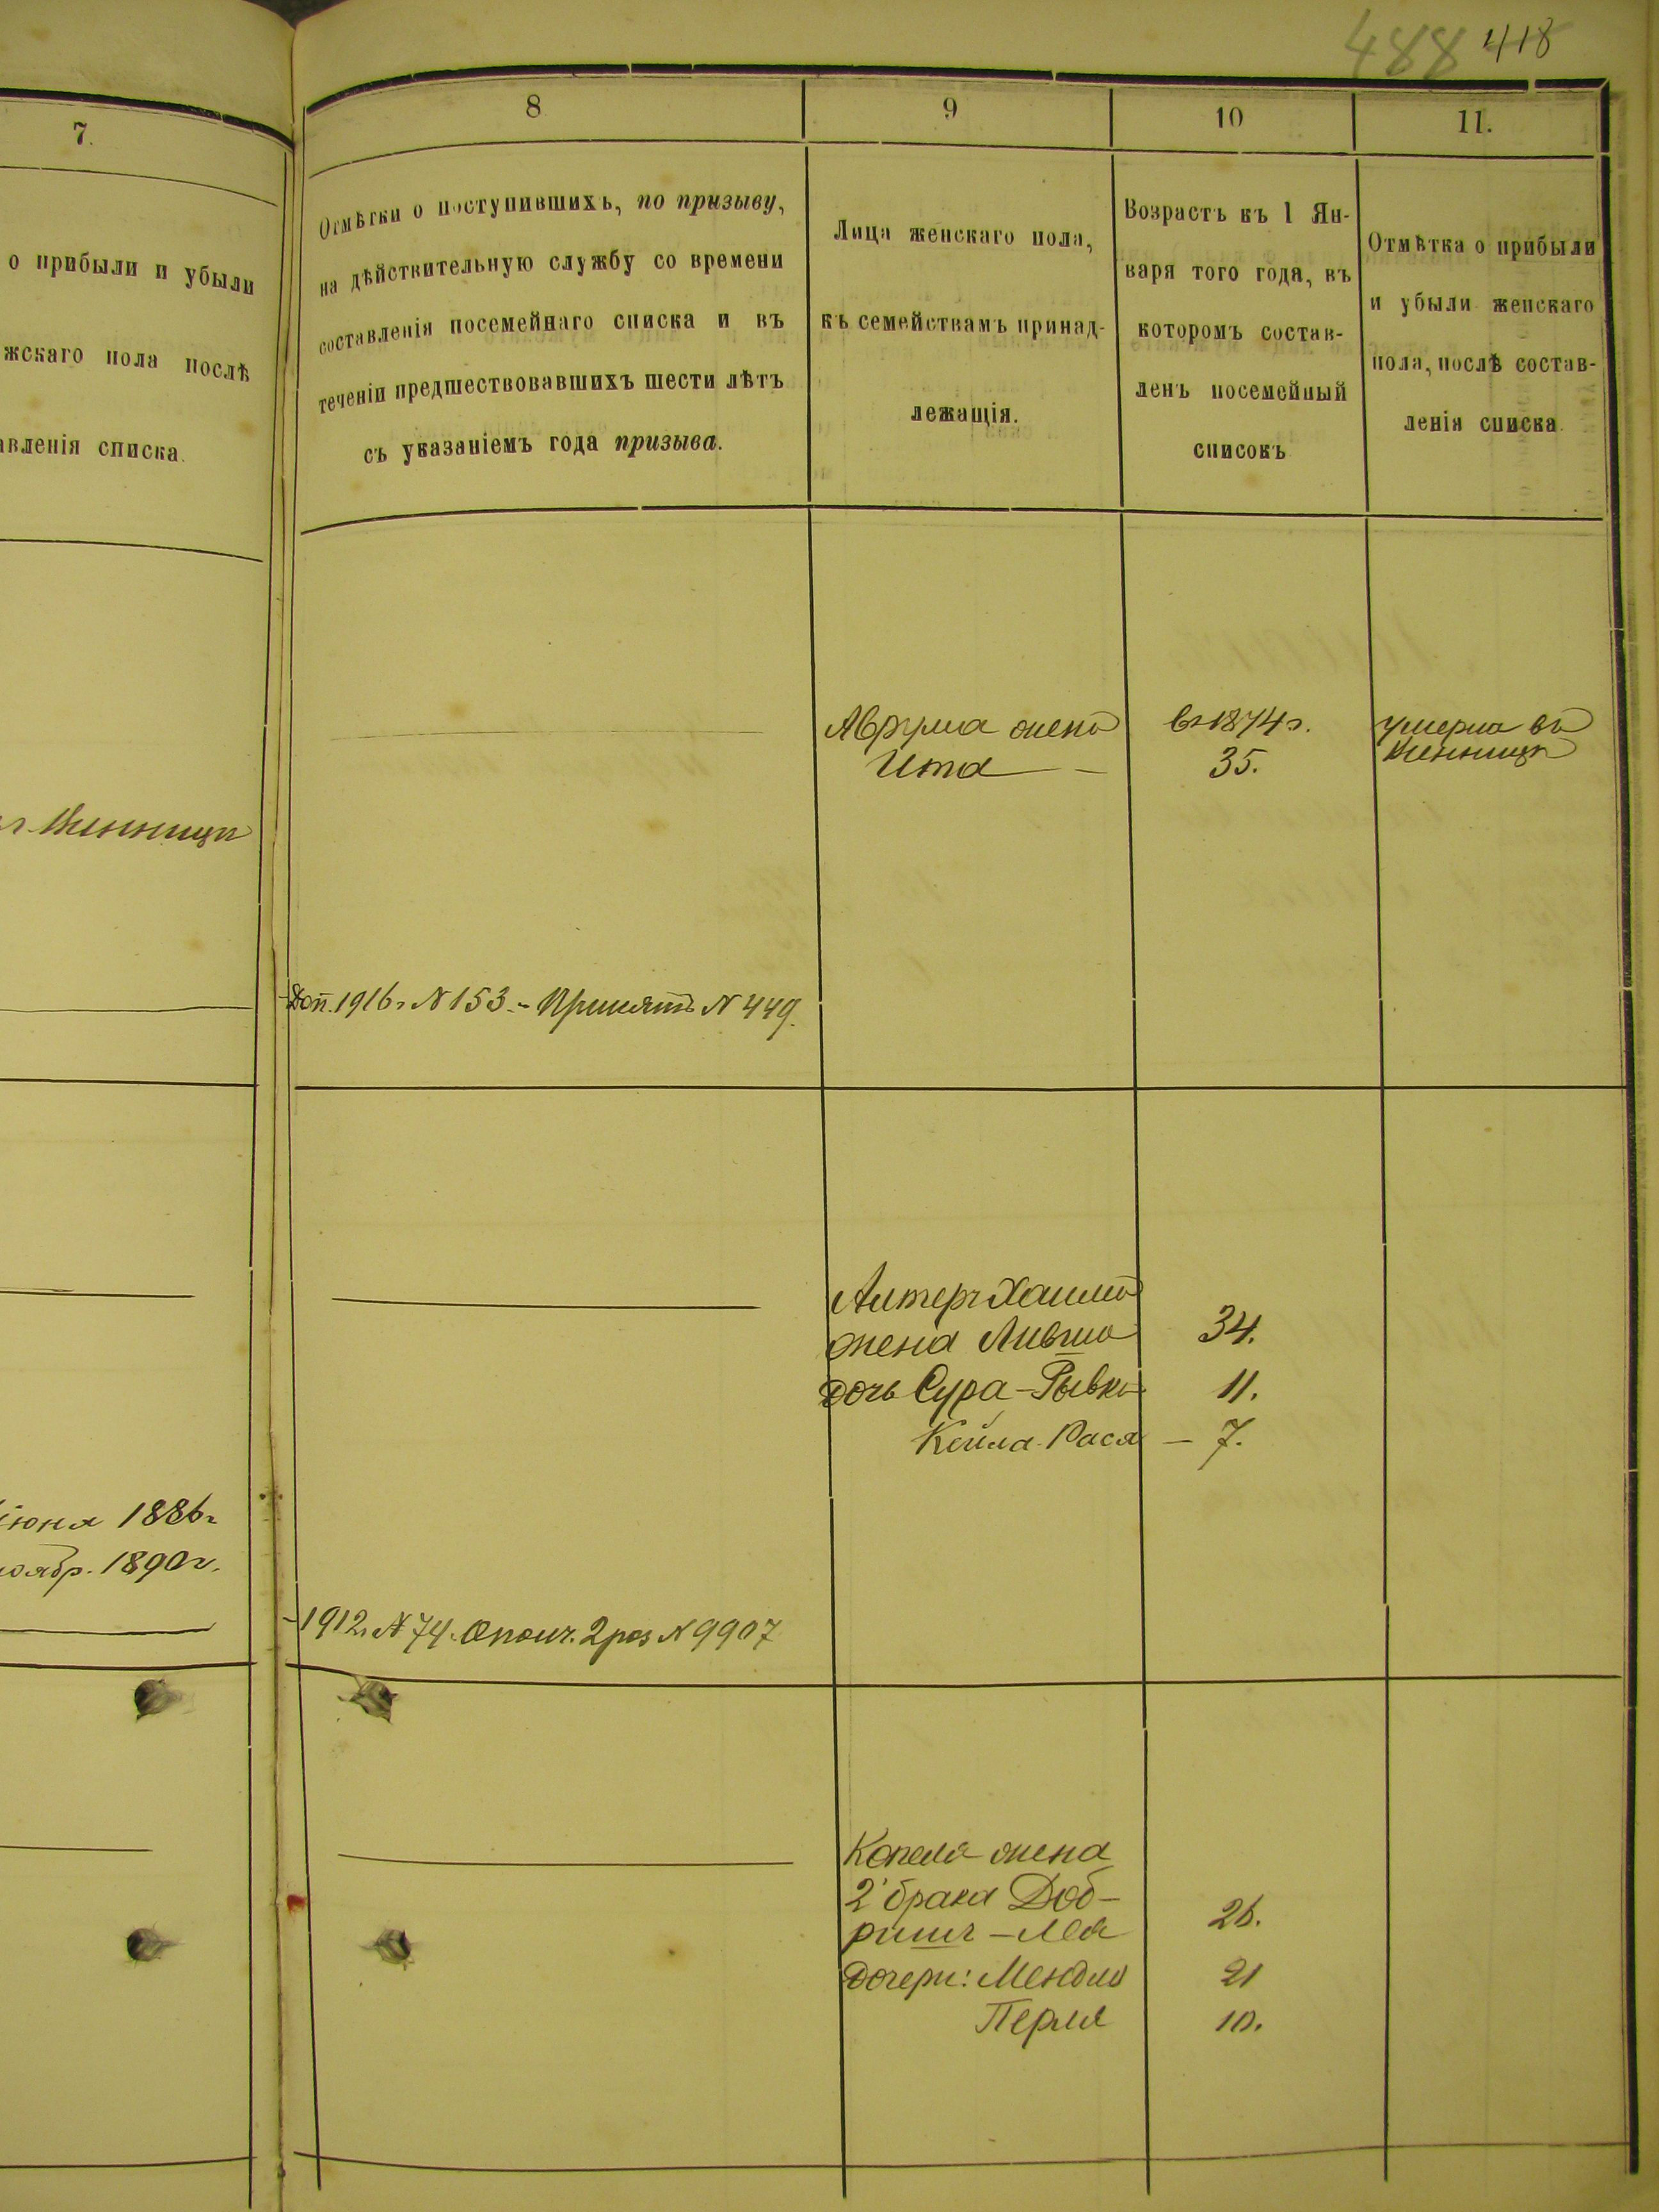 488 418
7.
о прибыли и убыли
жскаго пола послѣ
авленія списка.
Винници
іюня 1886г
ноябр. 1890г.
8
Отмѣтки о поступившихъ, по призыву,
на дѣйствительную службу со времени
составленія посемейнаго списка и въ
теченіи предшествовавшихъ шести лѣтъ
съ указаніемъ года призыва.
Доп. 1916г N 153. - Принятъ N 449.
1912г N 74. 2 раз N 9907
9
Лица женскаго пола,
къ семействамъ принад-
лежащія.
Аврума жена
Ита
Алтеръ Хаима
жена Ливша
дочь Сура-Рывка
Кейла-Рася
Копеля жена
2 брака Доб-
ришъ-Лея
дочери: Мендля
Перля
10
Возрастъ къ 1 Ян-
варя того года, въ
которомъ состав-
ленъ посемейный
списокъ
въ 1874г.
35.
34.
11.
7.
26.
21
10.
11.
Отмѣтка о прибыли
и убыли женскаго
пола, послѣ состав-
ленія списка.
умерла въ
Винници